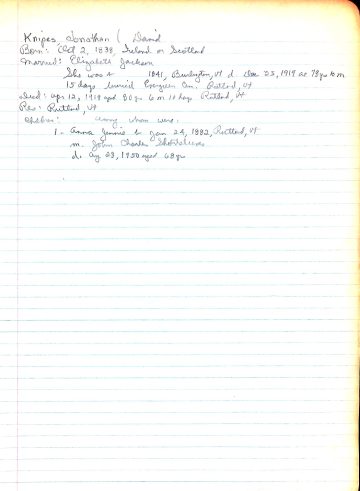 Knipes, Jonathan ( David
Born: Oct 2, 1838, Ireland or Scotland
Married: Elizabeth Jackson
She was b 1841, Burlington, Vt d. Dec 25, 1919 ae 78 yrs 10 m
15 days buried Evergreen Cem. Rutland, Vt
Died: Apr 12, 1919 aged 80 yrs 6 m 10 days Rutland, Vt
Res: Rutland, Vt
Children: among whom were:
1- Anna Jennie b. Jan 24, 1882, Rutland, Vt
m. John Charles
d. Aug 23, 1950 aged 68 yrs